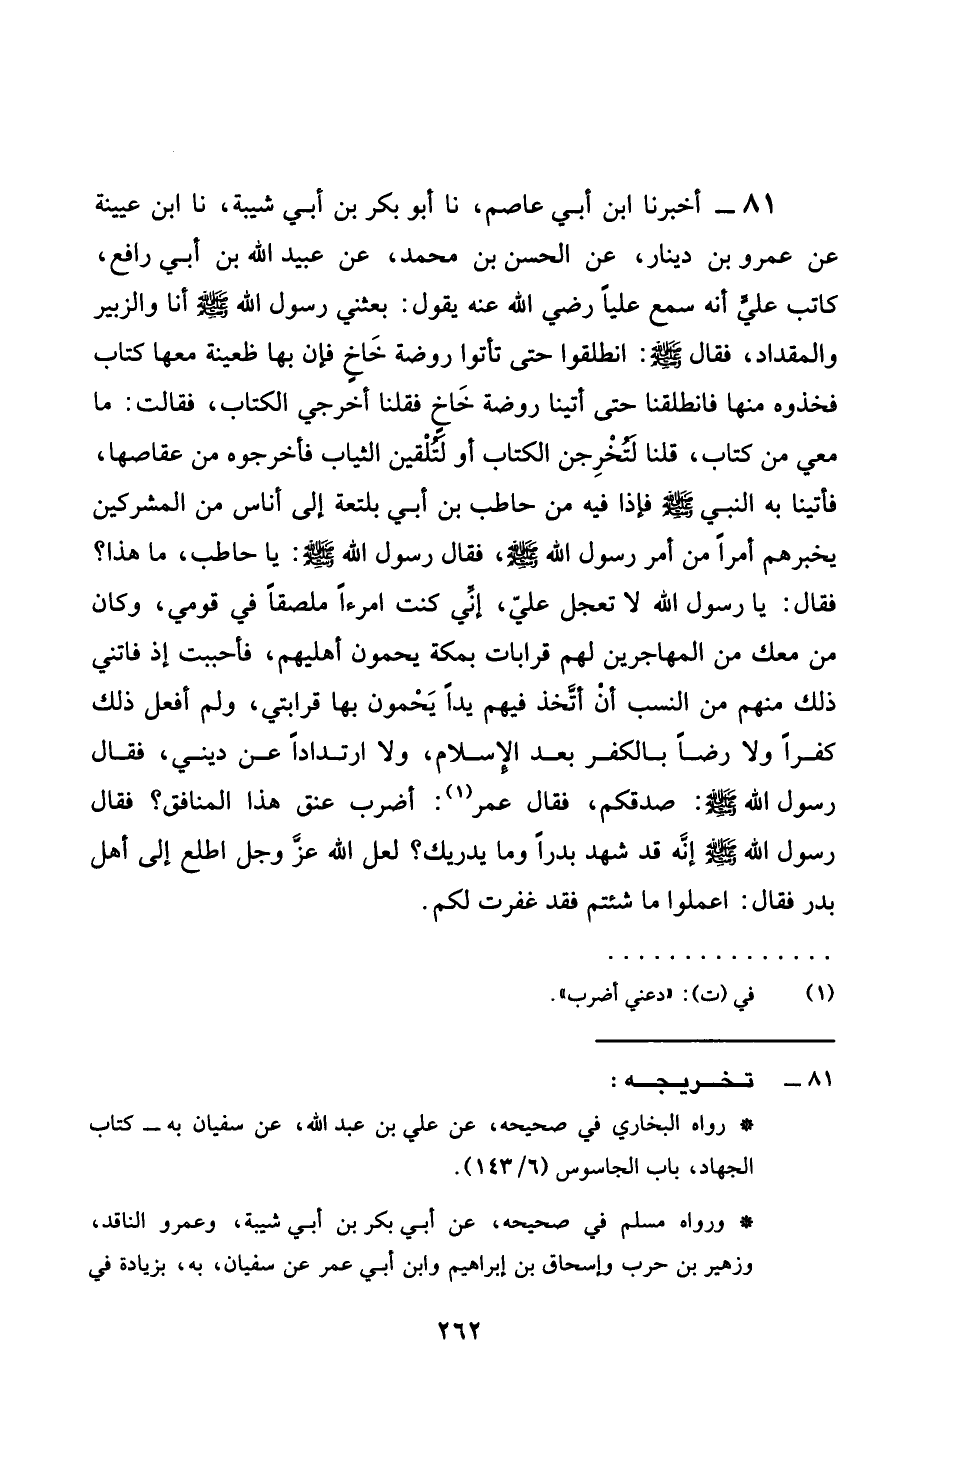 ٨١ ــ أخبرنا ابن أبي عاصم، نا أبو بكر بن أبي شيبة، نا ابن عيينة
عن عمرو بن دينار، عن الحسن بن محمد، عن عبيد الله بن أبي رافع،
كاتب عليٍّ أنه سمع علياً رضي الله عنه يقول: بعثني رسول الله ﷺ أنا والزبير
والمقداد، فقال ﷺ: انطلقوا حتى تأتوا روضة خَاخٍ فإن بها ظعينة معها كتاب
فخذوه منها فانطلقنا حتى أتينا روضة خَاخٍ فقلنا أخرجي الكتاب، فقالت: ما
معي من كتاب، قلنا لَتُخْرِجن الكتاب أو لَتُلْقين الثياب فأخرجوه من عقاصها،
فأتينا به النبي ﷺ فإذا فيه من حاطب بن أبي بلتعة إلى أناس من المشركين
يخبرهم أمراً من أمر رسول الله ﷺ، فقال رسول الله ﷺ: يا حاطب، ما هذا؟
فقال: يا رسول الله لا تعجل عليّ، إنِّي كنت امرءاً ملصقاً في قومي، وكان
من معك من المهاجرين لهم قرابات بمكة يحمون أهليهم، فأحببت إذ فاتني
ذلك منهم من النسب أنْ أتَّخذ فيهم يداً يَحْمون بها قرابتي، ولم أفعل ذلك
كفراً ولا رضاً بالكفر بعد الإسلام، ولا ارتداداً عن ديني، فقال
رسول الله ﷺ: صدقكم، فقال عمر(١): أضرب عنق هذا المنافق؟ فقال
رسول الله ﷺ إنَّه قد شهد بدراً وما يدريك؟ لعل الله عزَّ وجل اطلع إلى أهل
بدر فقال: اعملوا ما شئتم فقد غفرت لكم.
. . . . . . . . . . . . . . .
(١) في (ت): «دعني أضرب».
٨١ ــ تخريجه:
* رواه البخاري في صحيحه، عن علي بن عبد الله، عن سفيان به ــ كتاب
الجهاد، باب الجاسوس (٦/١٤٣).
* ورواه مسلم في صحيحه، عن أبي بكر بن أبي شيبة، وعمرو الناقد،
وزهير بن حرب وإسحاق بن إبراهيم وابن أبي عمر عن سفيان، به، بزيادة في
٢٦٢